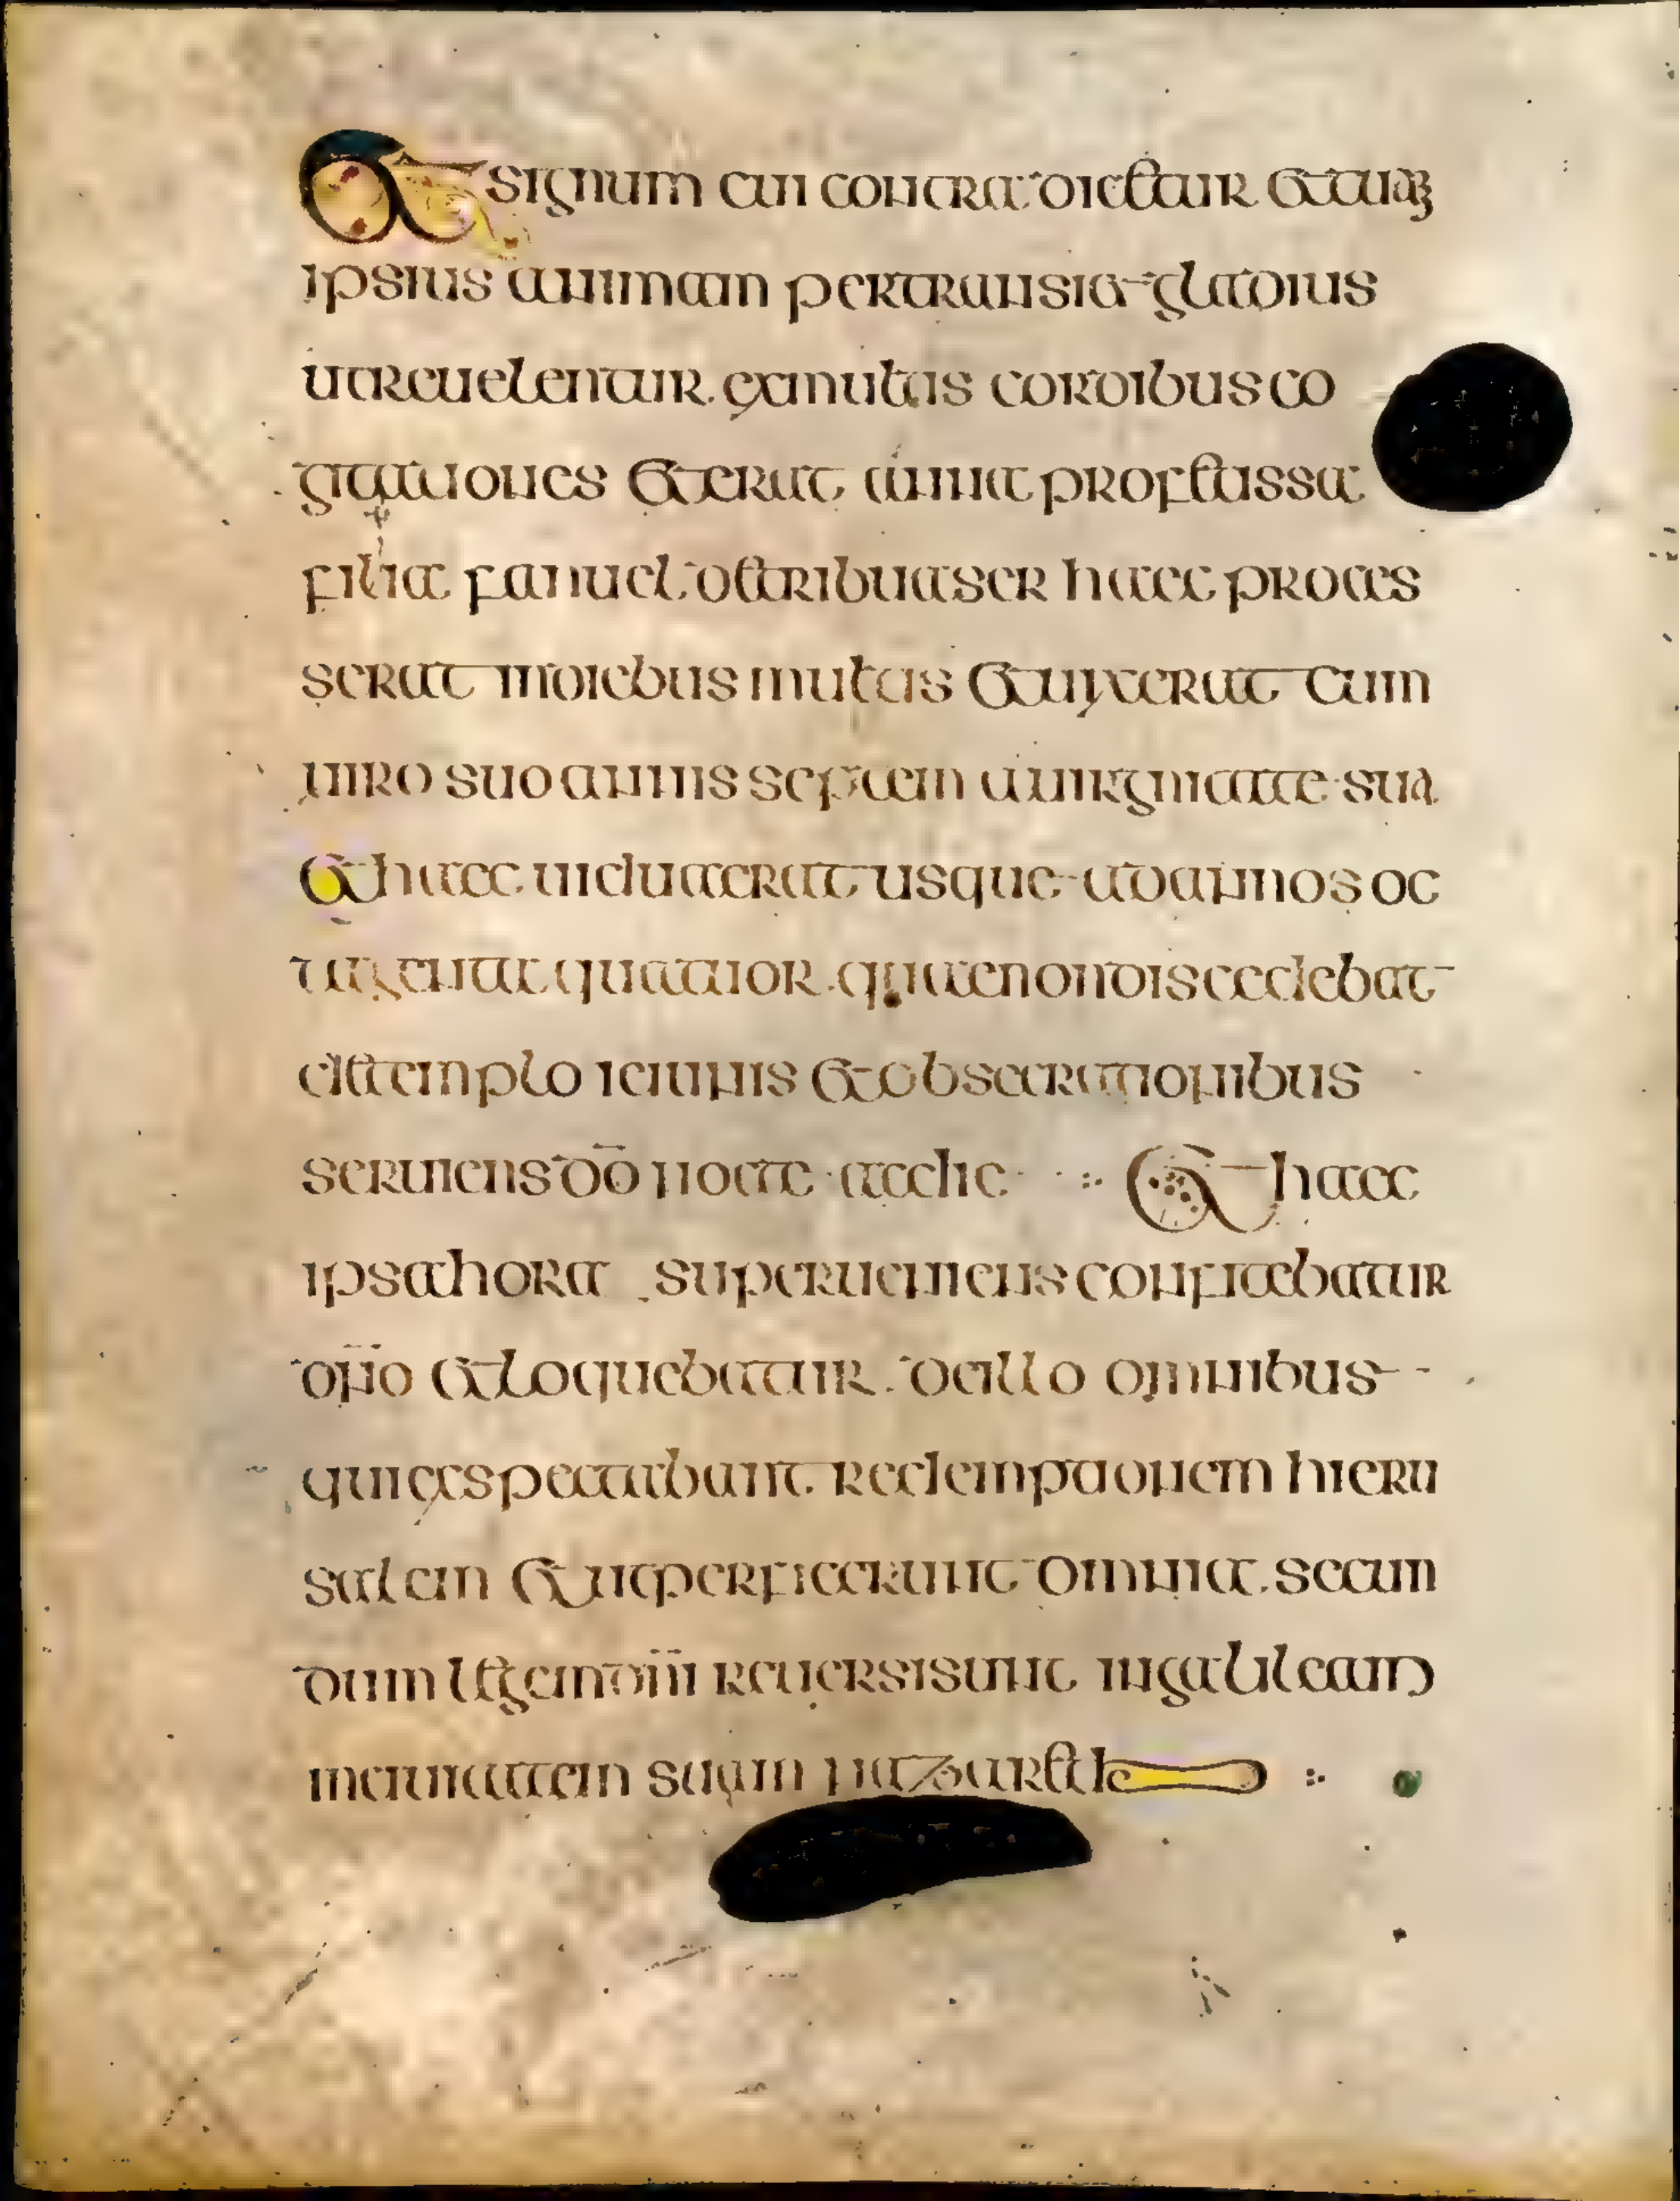 Et signum cui contradicetur et tuā
ipsius animam pertransiet gladius
ut reuelentur ex multis cordibus co
gitationes et erat anna profetissa
filia fanuel de tribu aser haec proces
serat in diebus multis et uixerat cum
uiro suo annis septem a uirginitate sua
et haec uidua erat usque ad annos oc
taginta quattuor quae non discedebat
de templo ieiuniis et obsecrationibus
seruiens dō nocte ac die Et haec
ipsa hora superueniens confitebatur
dn̄o et loquebatur de illo omnibus
qui exspectabant redemptionem hieru
salem et ut perficerunt omnia secun
dum legem dn̄i reuersi sunt in galileam
in ciuitatem suam nazareth